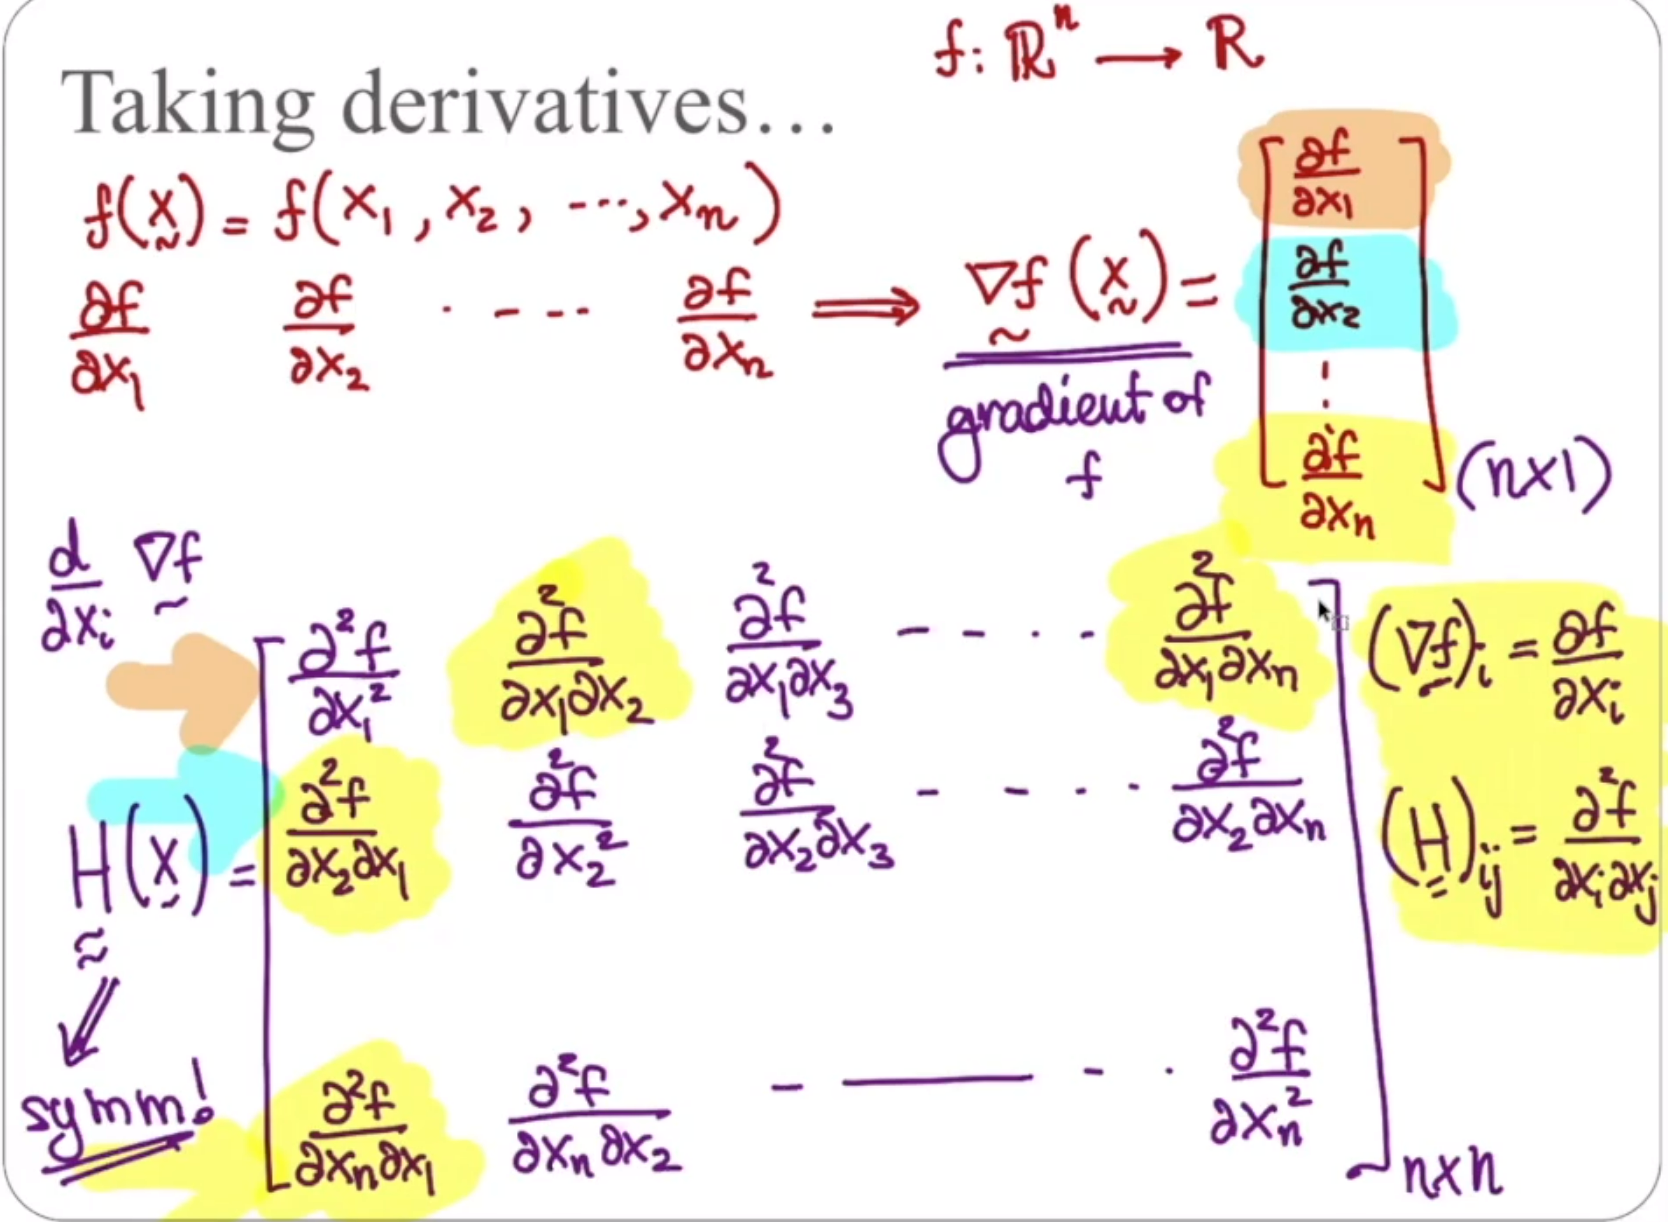 f: ℝⁿ ⟶ ℝ
Taking derivatives...
f(x̰) = f(x₁, x₂, ---, xₙ)
∂f/∂x₁ ∂f/∂x₂ · - - - ∂f/∂xₙ ⟹ ∇̰f(x̰) = [∂f/∂x₁ ∂f/∂x₂ ⋮ ∂f/∂xₙ] (n×1)
gradient of
f
d/∂xᵢ ∇̰f
H̰̰(x̰) = [
∂²f/∂x₁² ∂²f/∂x₁∂x₂ ∂²f/∂x₁∂x₃ - - · · ∂²f/∂x₁∂xₙ
∂²f/∂x₂∂x₁ ∂²f/∂x₂² ∂²f/∂x₂∂x₃ - - · · ∂²f/∂x₂∂xₙ
∂²f/∂xₙ∂x₁ ∂²f/∂xₙ∂x₂ - — - · ∂²f/∂xₙ²
] n×n
(∇̰f)ᵢ = ∂f/∂xᵢ
(H̰̰)ᵢⱼ = ∂²f/∂xᵢ∂xⱼ
⇓
symm!